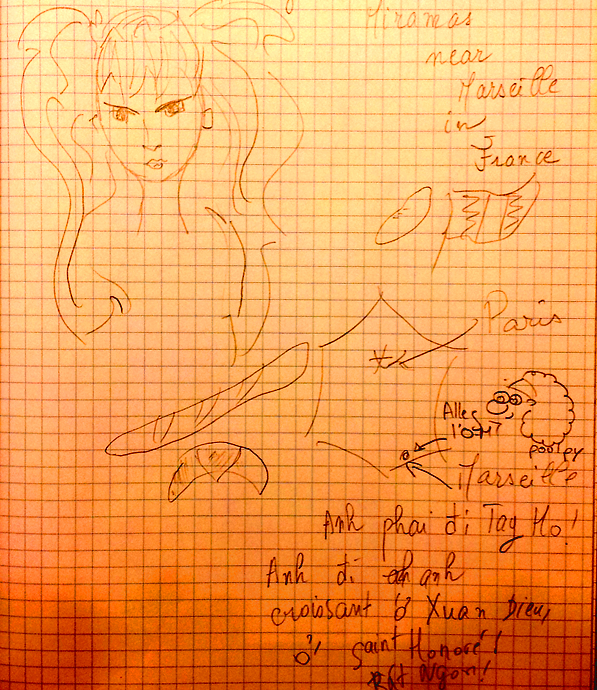 Miramas
near
Marseille
in
France
Paris
Allez
l'OM
pooley
Marseille
Anh phai đi Tay Ho!
Anh đi anh
croissant ở Xuan Dieu,
ở Saint Honoré!
Rất Ngon!